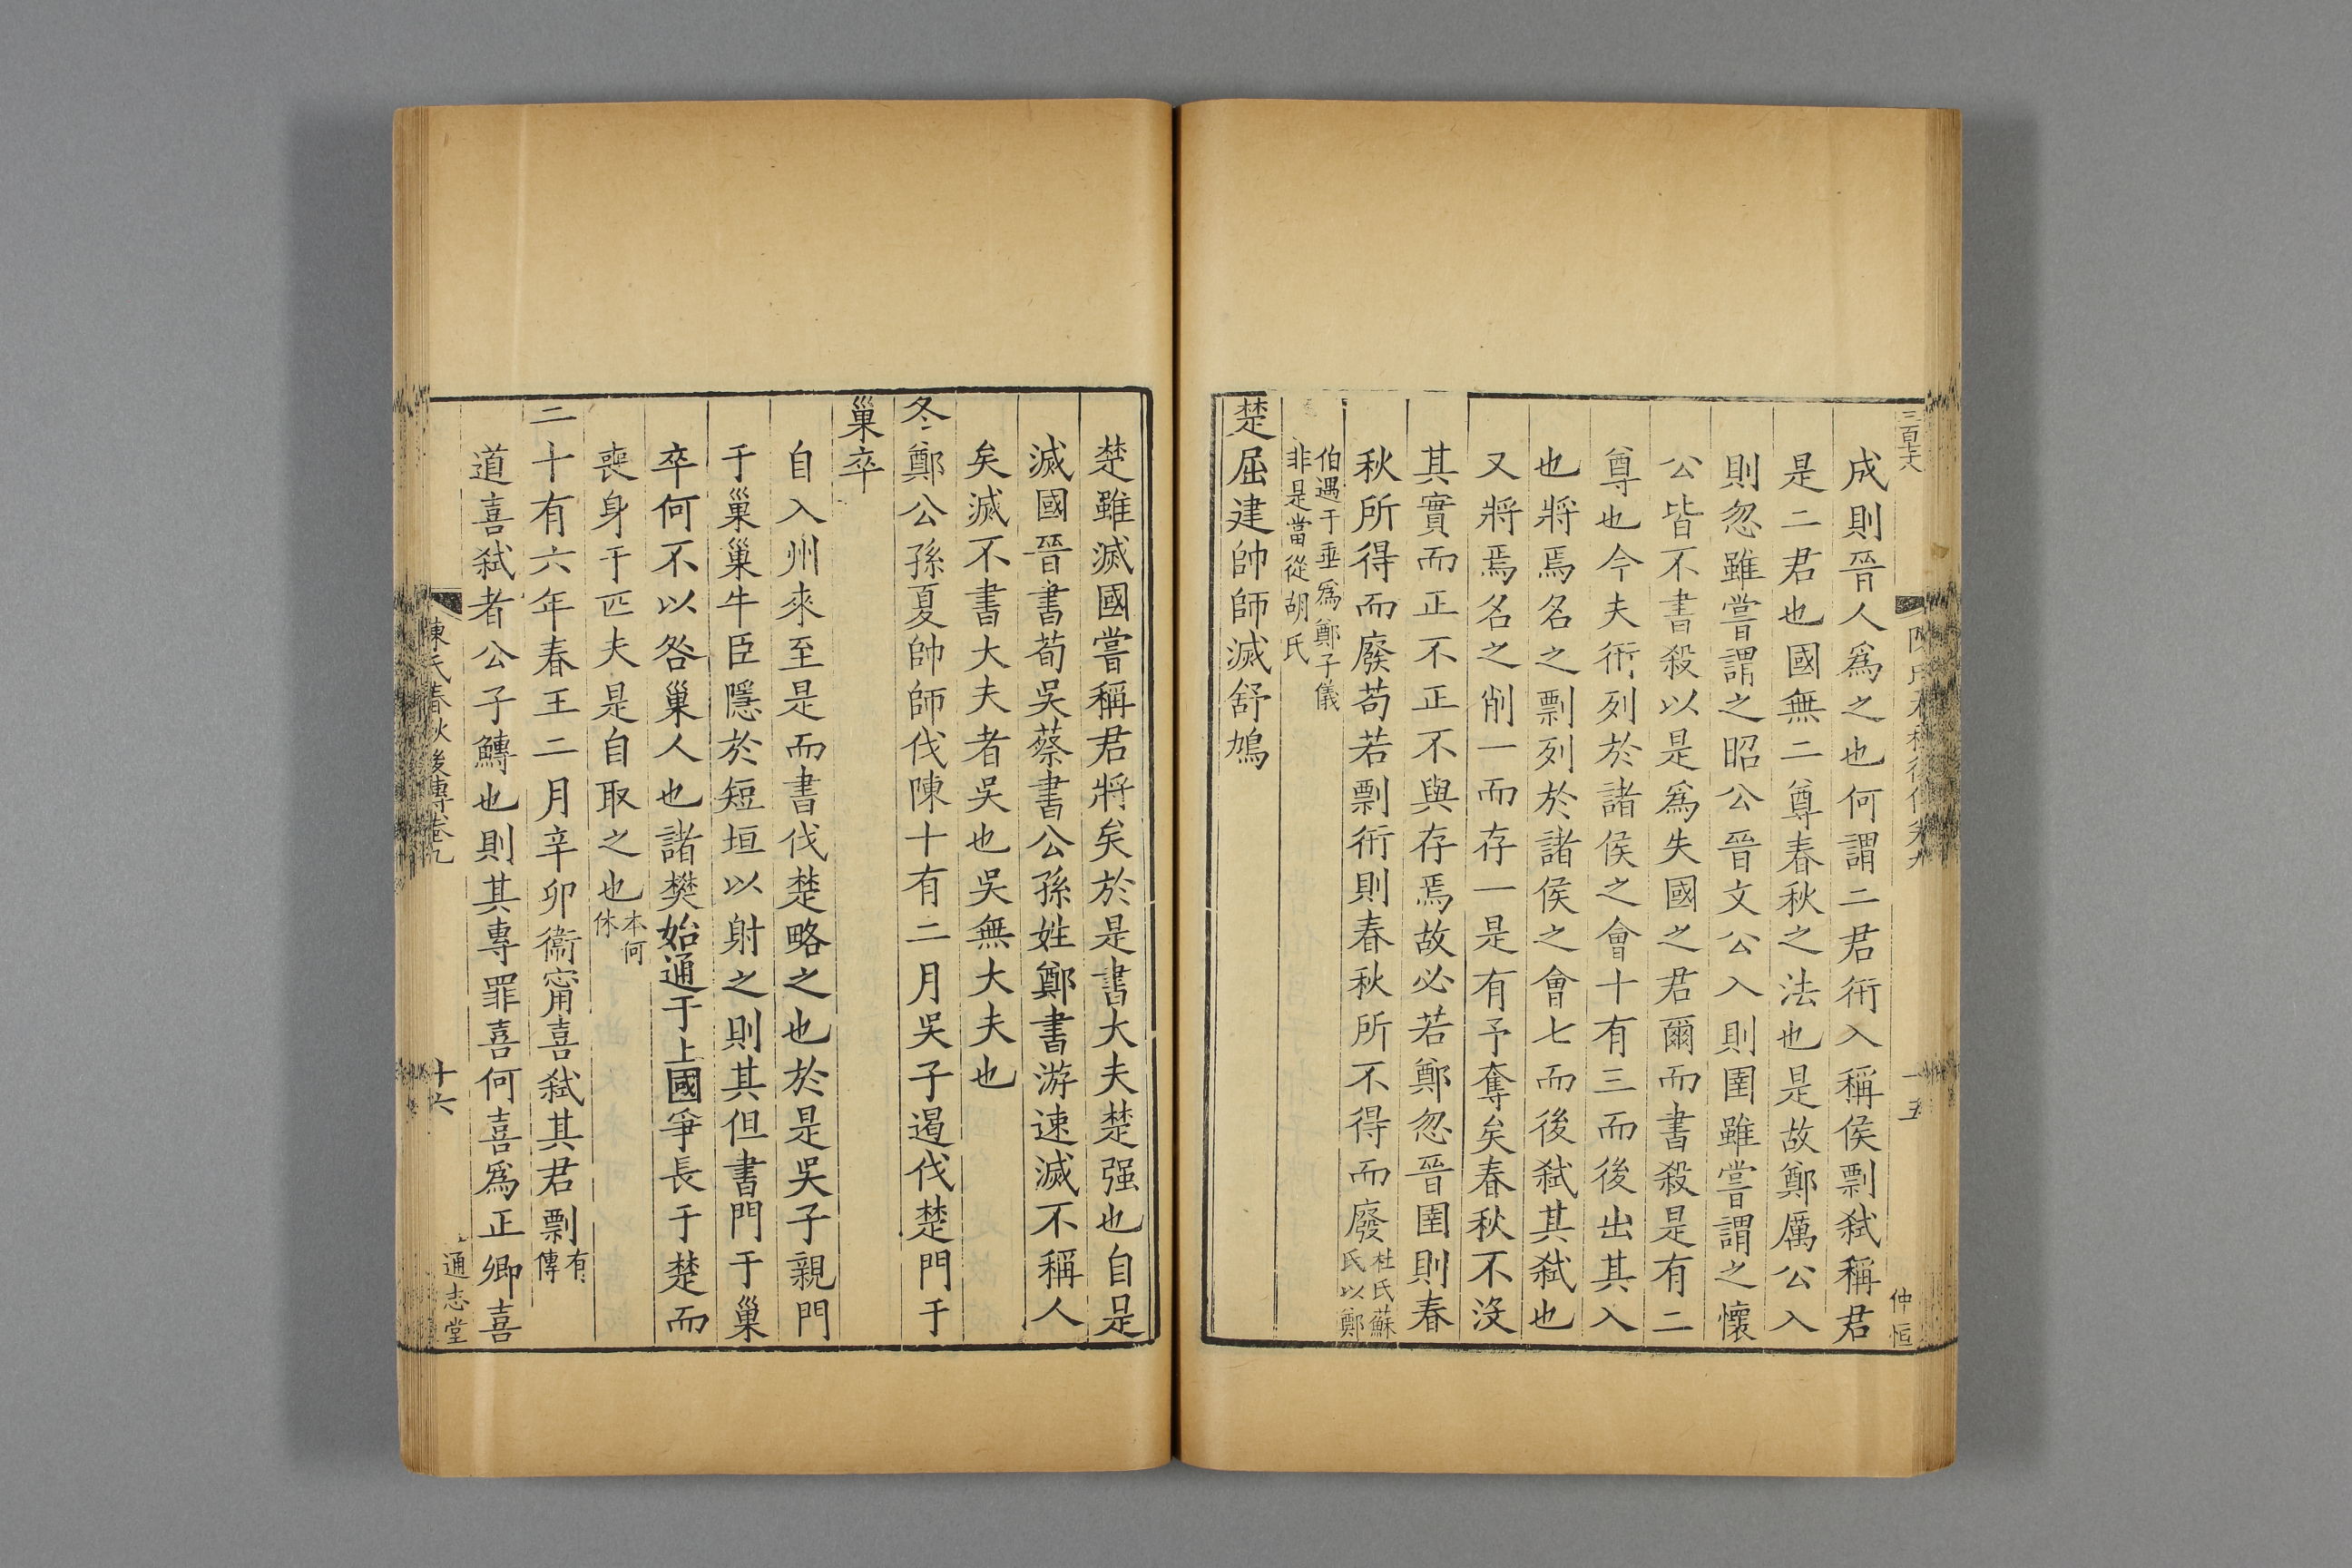 成則晉人爲之也何謂二君衎入稱侯剽弑稱君
是二君也國無二尊春秋之法也是故鄭厲公入
則忽雖嘗謂之昭公晉文公入則圉雖嘗謂之懷
公皆不書殺以是爲失國之君爾而書殺是有二
尊也今夫衎列於諸侯之會十有三而後出其入
也將焉名之剽列於諸侯之會七而後弑其弑也
又將焉名之削一而存一是有予奪矣春秋不沒
其實而正不正不與存焉故必若鄭忽晉圉則春
秋所得而廢苟若剽衎則春秋所不得而廢杜氏蘇氏以鄭
伯遇于垂爲鄭子儀
非是當從胡氏
楚屈建帥師滅舒鳩
楚雖滅國嘗稱君將矣於是書大夫楚强也自是
滅國晉書荀吳蔡書公孫姓鄭書游速滅不稱人
矣滅不書大夫者吳也吳無大夫也
冬鄭公孫夏帥師伐陳十有二月吳子遏伐楚門于
巢卒
自入州來至是而書伐楚略之也於是吳子親門
于巢巢牛臣隱於短垣以射之則其但書門于巢
卒何不以咎巢人也諸樊始通于上國爭長于楚而
喪身于匹夫是自取之也本何休
二十有六年春王二月辛卯衞甯喜弑其君剽有傳
道喜弑者公子鱄也則其專罪喜何喜爲正卿喜
陳氏春秋後傳卷九
十六
通志堂
三百六十八
十五
仲恒